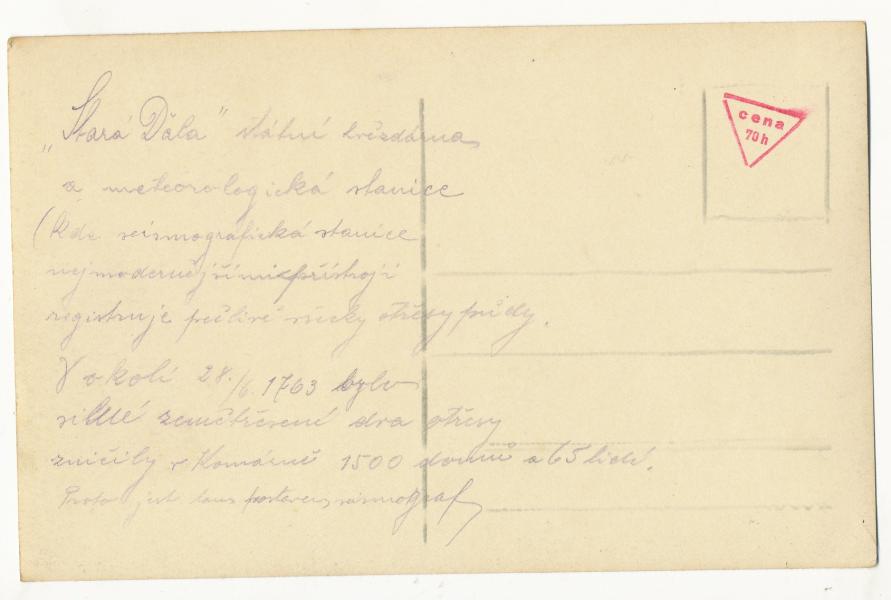 „Stará Ďala" státní hvězdárna
a meteorologická stanice
(kde seismografická stanice
nejmodernějšími přístroji
registruje pečlivě všecky otřesy půdy.
V okolí 28./6. 1763 bylo
silné zemětřesení dva otřesy
zničily v Komárně 1500 domů a 65 lidí.
Proto jest tam postaven seismograf
cena
70h